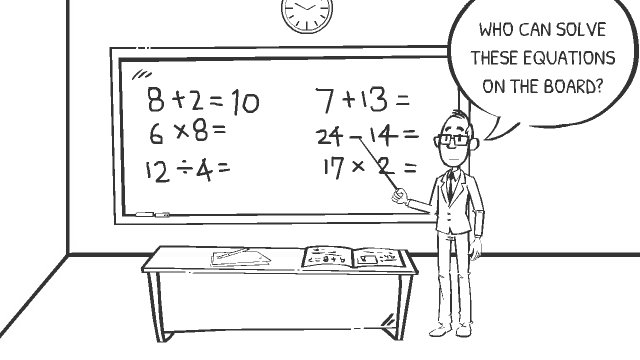 WHO CAN SOLVE
THESE EQUATIONS
ON THE BOARD?
8+2=10
6×8=
12÷4=
7+13=
24-14=
17×2=